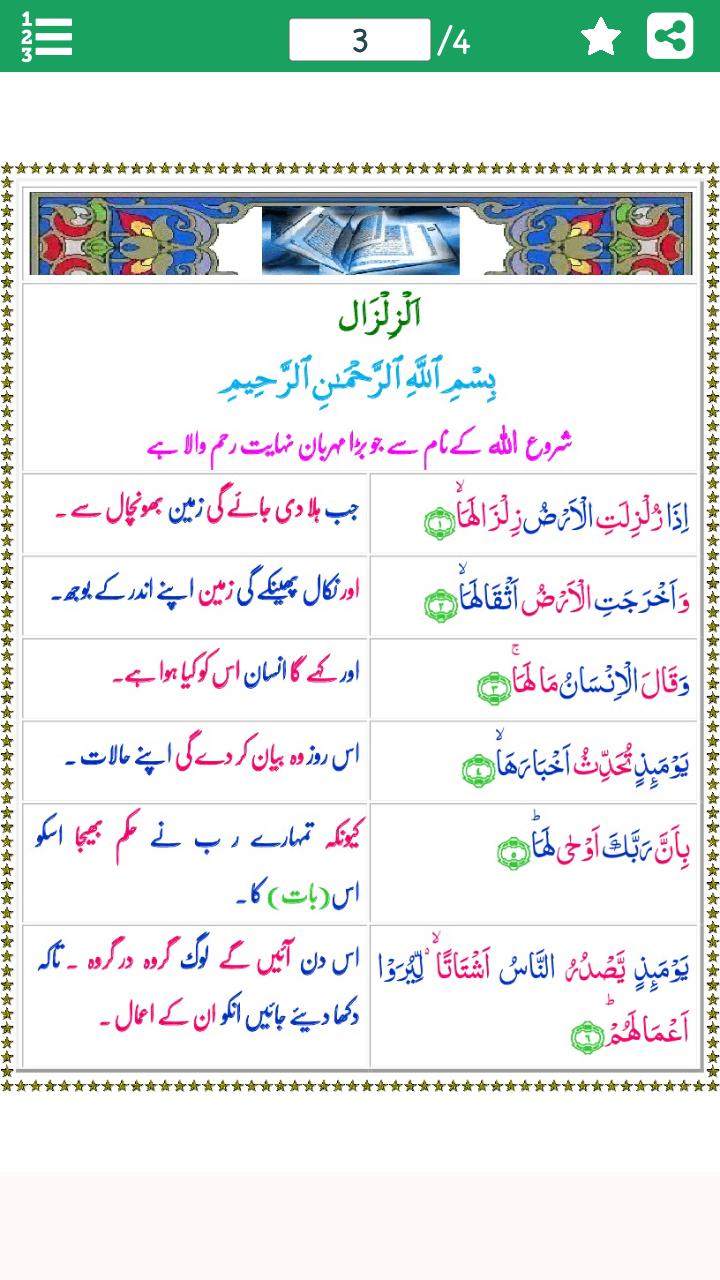 1
2
3
3 /4
اَلزِّلْزَال
بِسْمِ ٱللَّهِ ٱلرَّحْمَـٰنِ ٱلرَّحِيمِ
شروع اللہ کے نام سے جو بڑا مہربان نہایت رحم والا ہے
اِذَا زُلْزِلَتِ الْاَرْضُ زِلْزَالَهَاۙ ۝١
جب ہلا دی جائے گی زمین بھونچال سے ۔
وَاَخْرَجَتِ الْاَرْضُ اَثْقَالَهَاۙ ۝٢
اور نکال پھینکے گی زمین اپنے اندر کے بوجھ۔
وَقَالَ الْاِنْسَانُ مَا لَهَاۚ ۝٣
اور کہے گا انسان اس کو کیا ہوا ہے۔
يَوْمَىِٕذٍ تُحَدِّثُ اَخْبَارَهَاۙ ۝٤
اس روز وہ بیان کر دے گی اپنے حالات ۔
بِاَنَّ رَبَّكَ اَوْحٰى لَهَاؕ ۝٥
کیونکہ تمہارے ر ب نے حکم بھیجا اسکو
اس (بات) کا۔
يَوْمَىِٕذٍ يَّصْدُرُ النَّاسُ اَشْتَاتًا ۙ۬ لِّيُرَوْا
اَعْمَالَهُمْؕ ۝٦
اس دن آئیں گے لوگ گروہ در گروہ ۔ تاکہ
دکھا دیئے جائیں انکو ان کے اعمال ۔